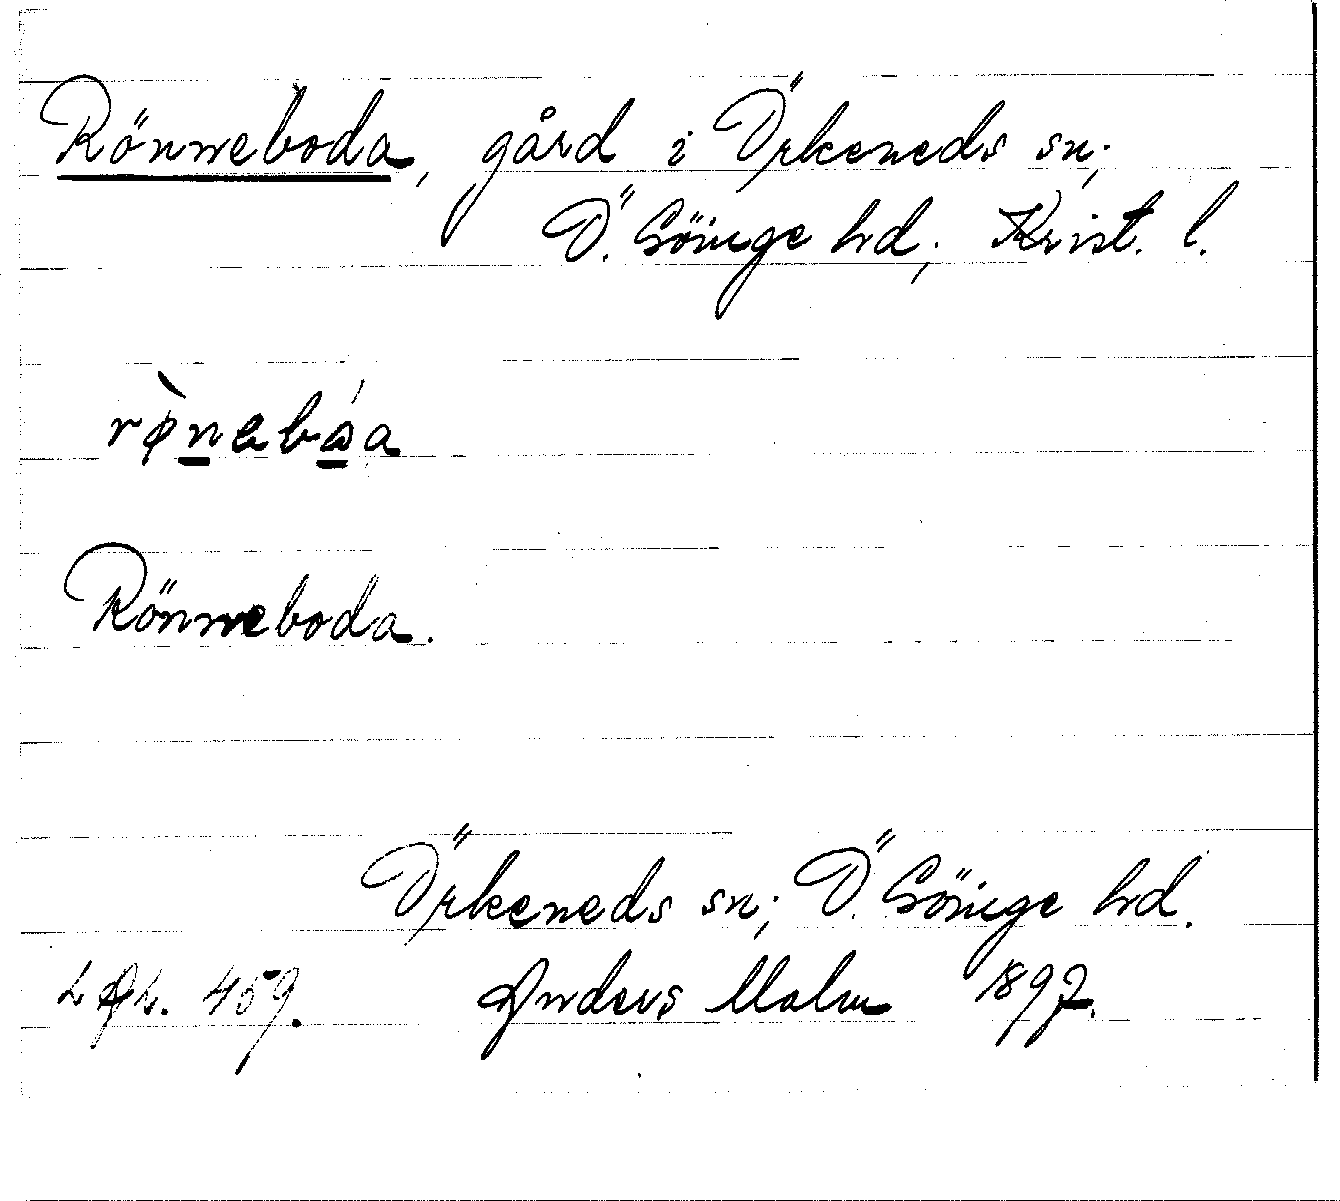 Rönneboda, gård i Örkeneds sn;
Ö. Göinge hd; Krist. l.
Rönneboda.
Örkeneds sn; Ö. Göinge hd.
459. Anders Malm 1897.